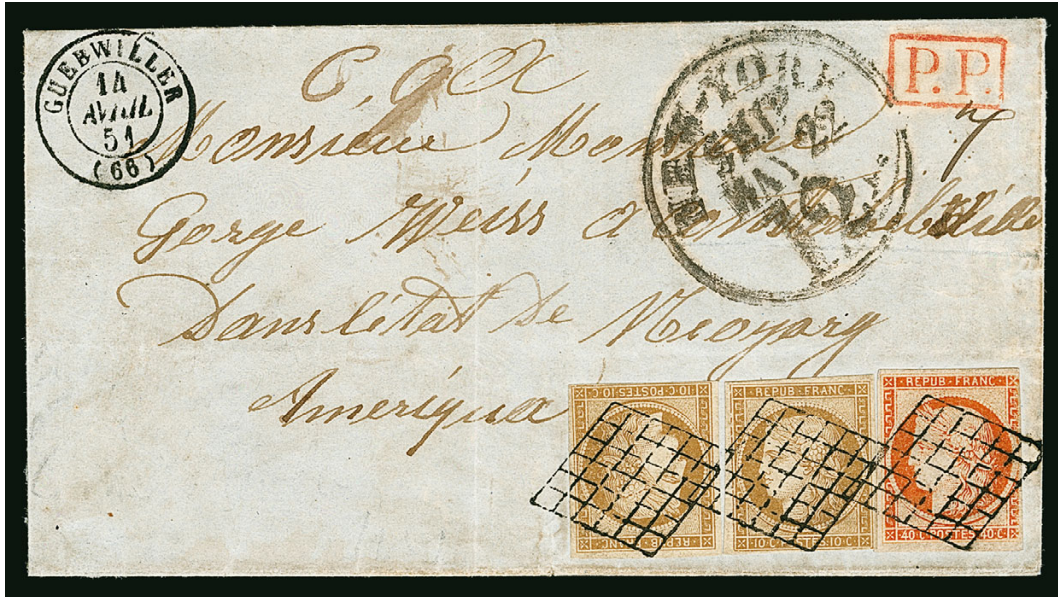 GUEBWILLER
14
AVRIL
51
(66)
NEW-YORK
SHIP
MAY
22
12
P.P.
Monsieur Monsieur
Gorge Weiss a
Dans létat de Neoyorg
Ameriqua
10·C·POSTES·10·C
REPUB·FRANC
REPUB·FRANC·
10·C·POSTES·10·C
·REPUB·FRANC·
40·C·POSTES·40·C